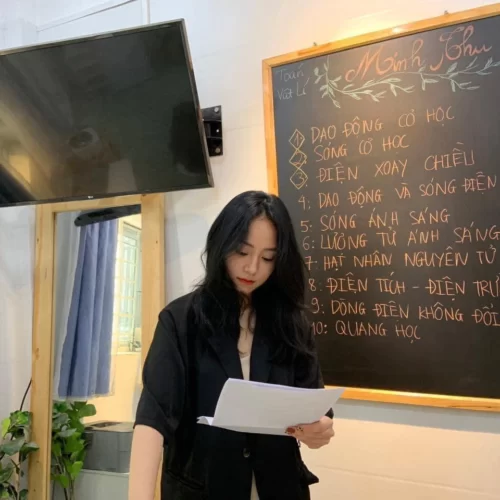 Toán
Vật Lí
Minh Thu
1 DAO ĐỘNG CƠ HỌC
2 SÓNG CƠ HỌC
3 ĐIỆN XOAY CHIỀU
4: DAO ĐỘNG VÀ SÓNG ĐIỆN
5: SÓNG ÁNH SÁNG
6: LƯỢNG TỬ ÁNH SÁNG
7: HẠT NHÂN NGUYÊN TỬ
8: ĐIỆN TÍCH - ĐIỆN TRƯ
9: DÒNG ĐIỆN KHÔNG ĐỔI
10: QUANG HỌC